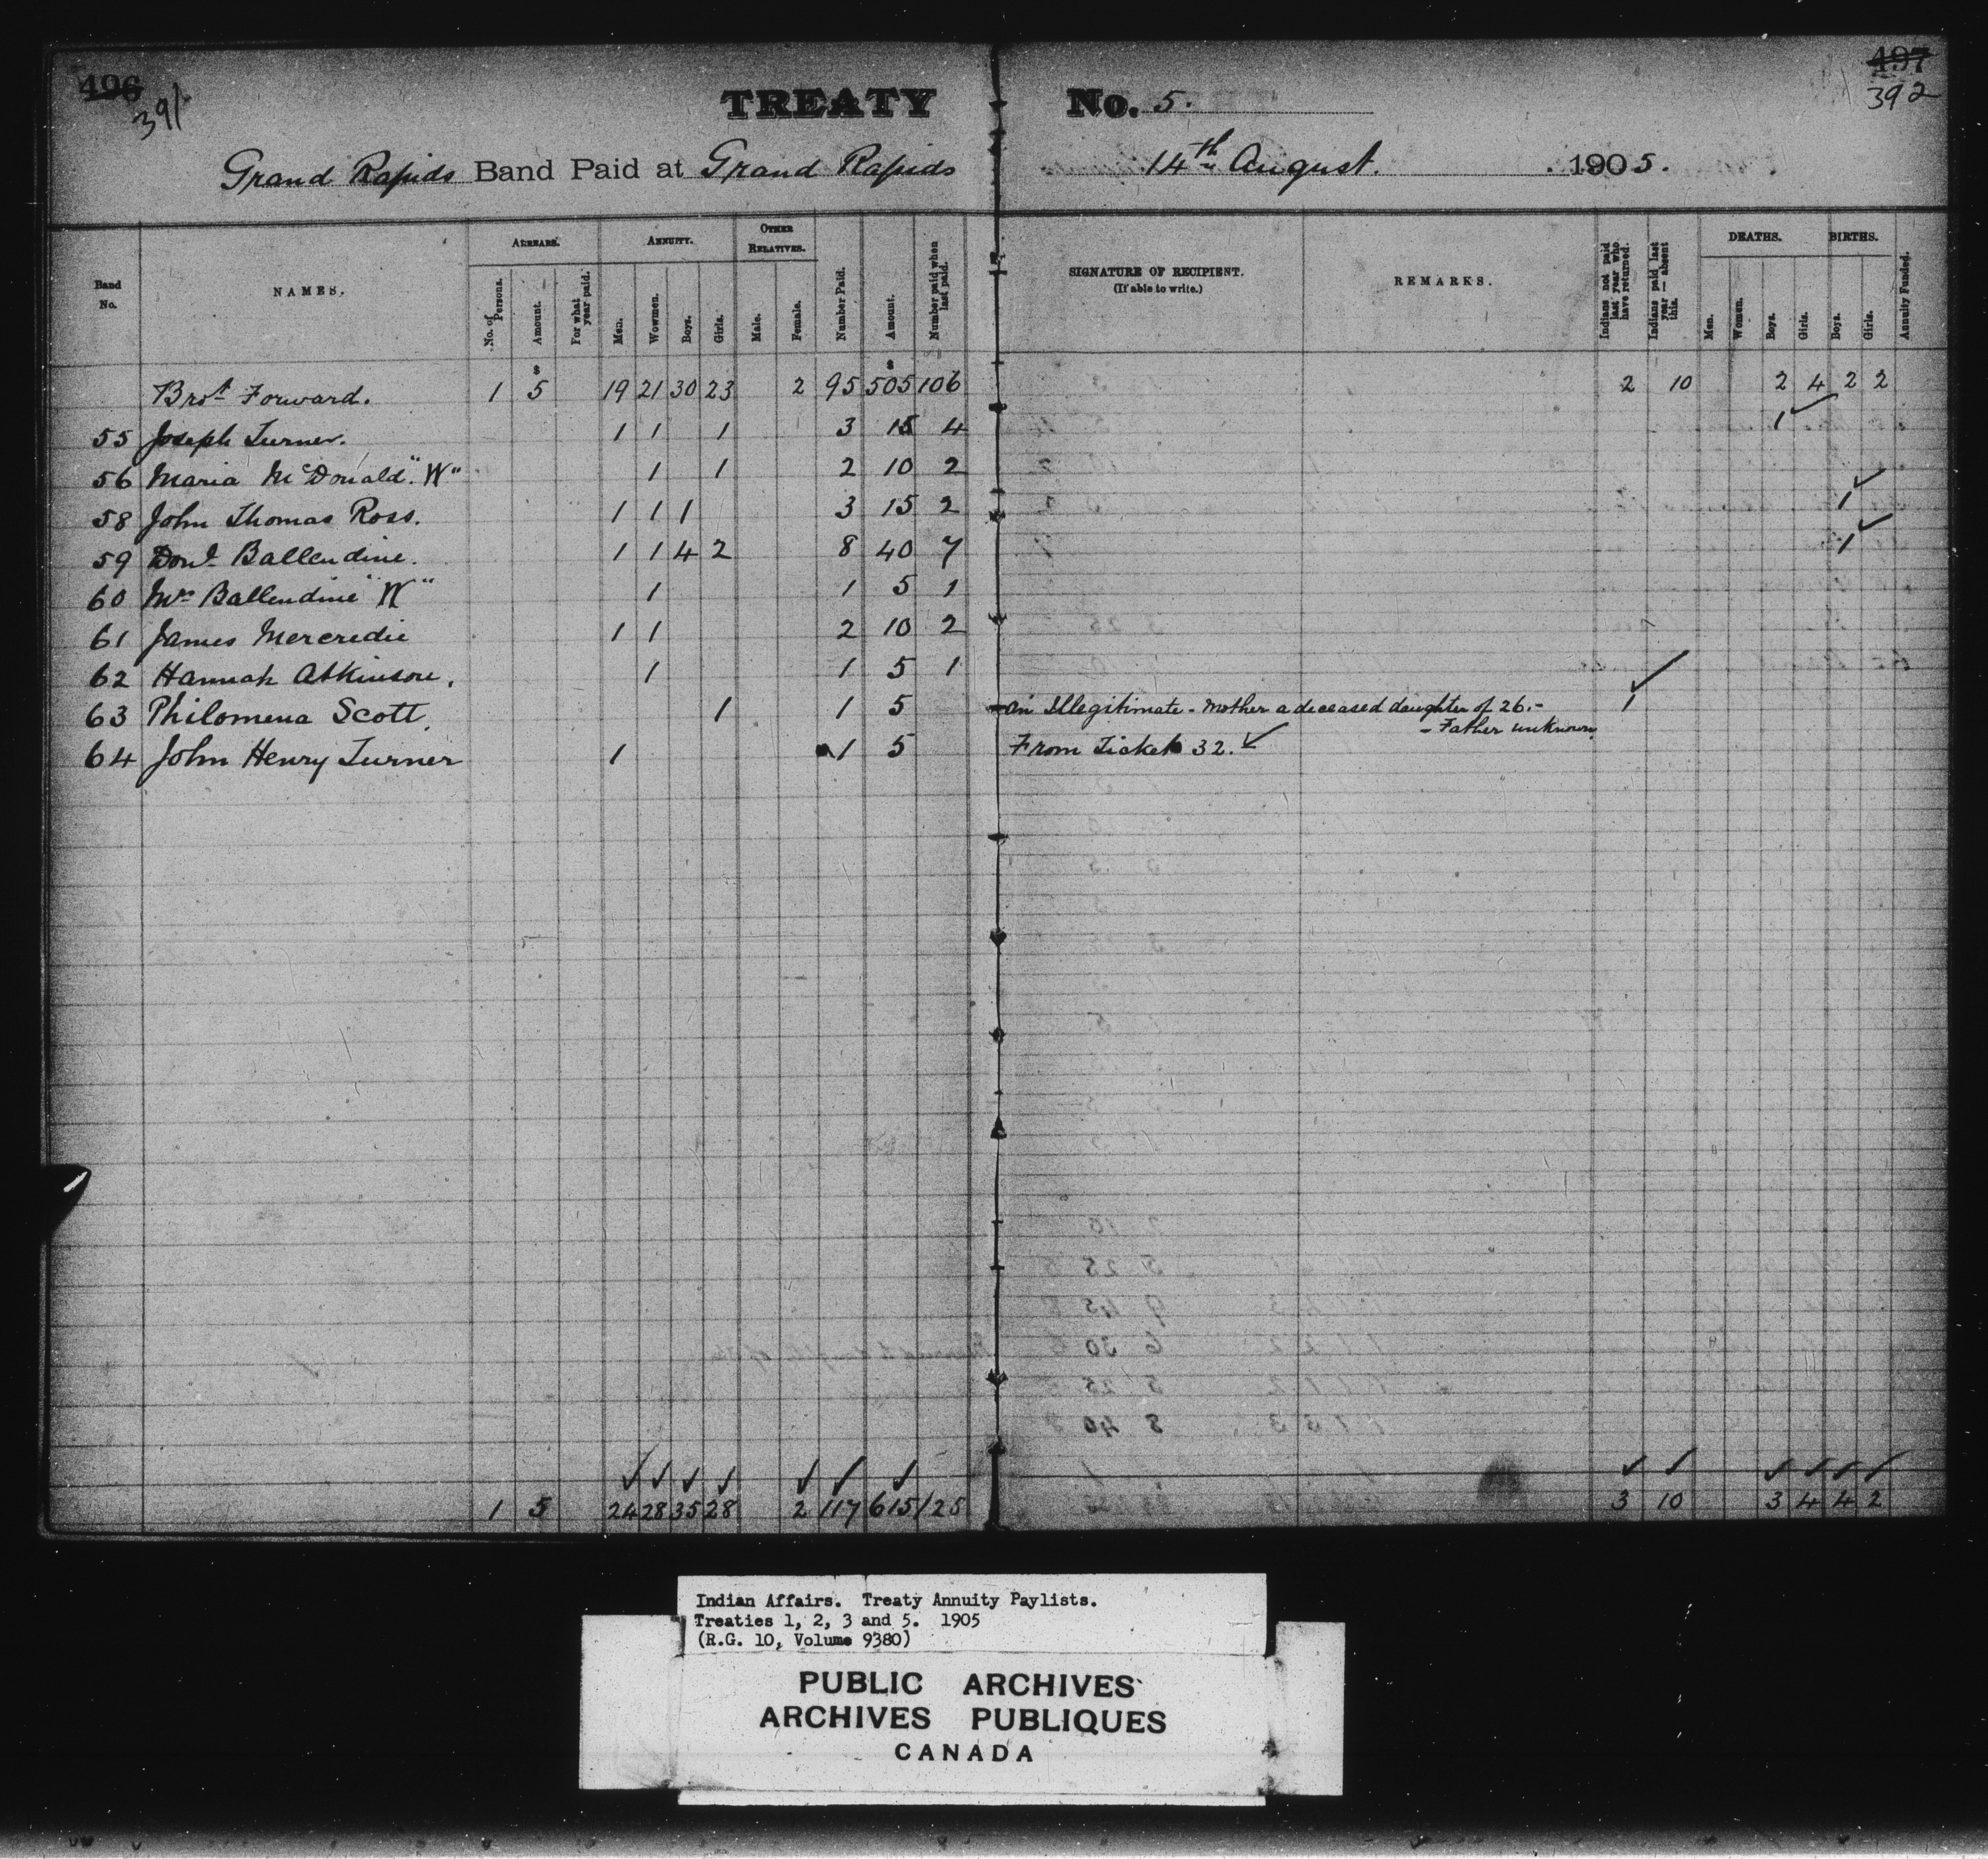 496
391
497
392
TREATY No. 5.
Grand Rapids Band Paid at Grand Rapids 14th August. 1905.
Band No.
NAMES.
ARREARS.
No. of Persons.
Amount.
For what year paid.
ANNUITY.
Men.
Wowmen.
Boys.
Girls.
OTHER RELATIVES.
Male.
Female.
Number Paid.
Amount.
Number paid when last paid.
SIGNATURE OF RECIPIENT.
(If able to write.)
REMARKS.
Indians not paid last year who have returned.
Indians paid last year — absent this.
DEATHS.
Men.
Women.
Boys.
Girls.
BIRTHS.
Boys.
Girls.
Annuity Funded.
$ $
Brot Forward. 1 5 19 21 30 23 2 95 505 106 2 10 2 4 2 2
55 Joseph Turner. 1 1 1 3 15 4 1 ✓
56 Maria McDonald "W" 1 1 2 10 2
58 John Thomas Ross. 1 1 1 3 15 2 1 ✓
59 Dond Ballendine. 1 1 4 2 8 40 7 1 ✓
60 Mrs Ballendine "W" 1 1 5 1
61 James Mercredie 1 1 2 10 2
62 Hannah Atkinson. 1 1 5 1
63 Philomena Scott 1 1 5 An Illegitimate - Mother a deceased daughter of 26.- 1 ✓
- Father unknown
64 John Henry Turner 1 1 5 From Ticket 32. ✓
✓ ✓ ✓ ✓ ✓ ✓ ✓ ✓ ✓ ✓ ✓ ✓ ✓
1 5 24 28 35 28 2 117 615 125 3 10 3 4 4 2
Indian Affairs. Treaty Annuity Paylists.
Treaties 1, 2, 3 and 5. 1905
(R.G. 10, Volume 9380)
PUBLIC ARCHIVES
ARCHIVES PUBLIQUES
CANADA